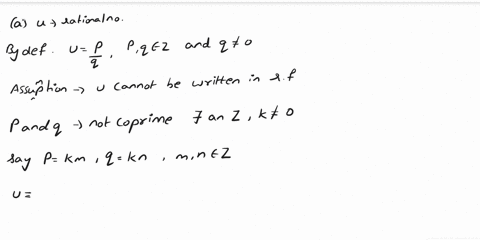 (a) u → rational no.
By def. u = p/q, p,q ∈ Z and q ≠ 0
Assumption → u cannot be written in r.f
p and q → not coprime ∃ an Z, k ≠ 0
say p = km, q = kn, m,n ∈ Z
u =